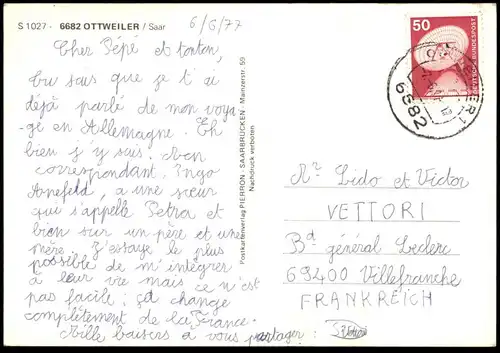 S 1027 - 6682 OTTWEILER / Saar
6/6/77
Cher Pépé et tonton,
tu sais que je t'ai
déjà parlé de mon voya-
ge en Allemagne. Eh
bien j'y suis. Mon
correspondant, Ingo
Arnefeld, a une sœur
qui s'appelle Petra et
bien sur un père et une
mère. J'essaye le plus
possible de m'intégrer
à leur vie mais ce n'est
pas facile; ça change
complètement de la France.
Mille baisers à vous partager :
Postkartenverlag PIERRON - SAARBRÜCKEN - Mainzerstr. 55
Nachdruck verboten
50
DEUTSCHE BUNDESPOST
6682
Mr Lido et Victor
VETTORI
Bd général Leclerc
69400 Villefranche
FRANKREICH